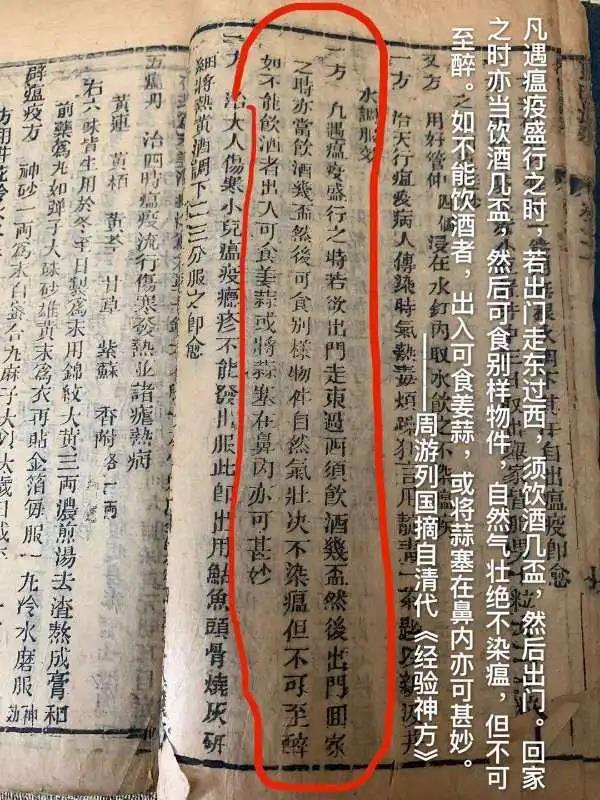 凡遇瘟疫盛行之时，若出门走东过西，须饮酒几盃，然后出门。回家
之时亦当饮酒几盃，然后可食别样物件，自然气壮绝不染瘟，但不可
至醉。如不能饮酒者，出入可食姜蒜，或将蒜塞在鼻内亦可甚妙。
——周游列国摘自清代《经验神方》
出瘟疫即愈
又方 用好管仲四個浸在水缸內取水飲之不染瘟疾
一方 治天行瘟疫病人傳染時氣熱毒煩躁狂言用靛青一茶匙以新汲井
水調服效
一方 凡遇瘟疫盛行之時若欲出門走東過西須飲酒幾盃然後出門囬家
之時亦當飲酒幾盃然後可食別樣物件自然氣壯决不染瘟但不可至醉
如不能飲酒者出入可食姜蒜或將蒜塞在鼻內亦可甚妙
一方 治大人傷寒小兒瘟疫癍疹不能發出服此即出用鮎魚頭骨燒灰研
細將熱黃酒調下二三分服之即愈
五瘟丹 治四時瘟疫流行傷寒發熱並諸瘧熱病
黃連 黃柏 黃芩 甘草 紫蘇 香附各一兩
右六味皆生用於冬至日製爲末用錦紋大黃三兩濃煎湯去渣熬成膏和
前藥爲九如彈子大硃砂雄黃末爲衣再貼金箔每服一九冷水磨服神効
辟瘟疫方 神砂一兩爲末白蜜合九麻子大以太歲日